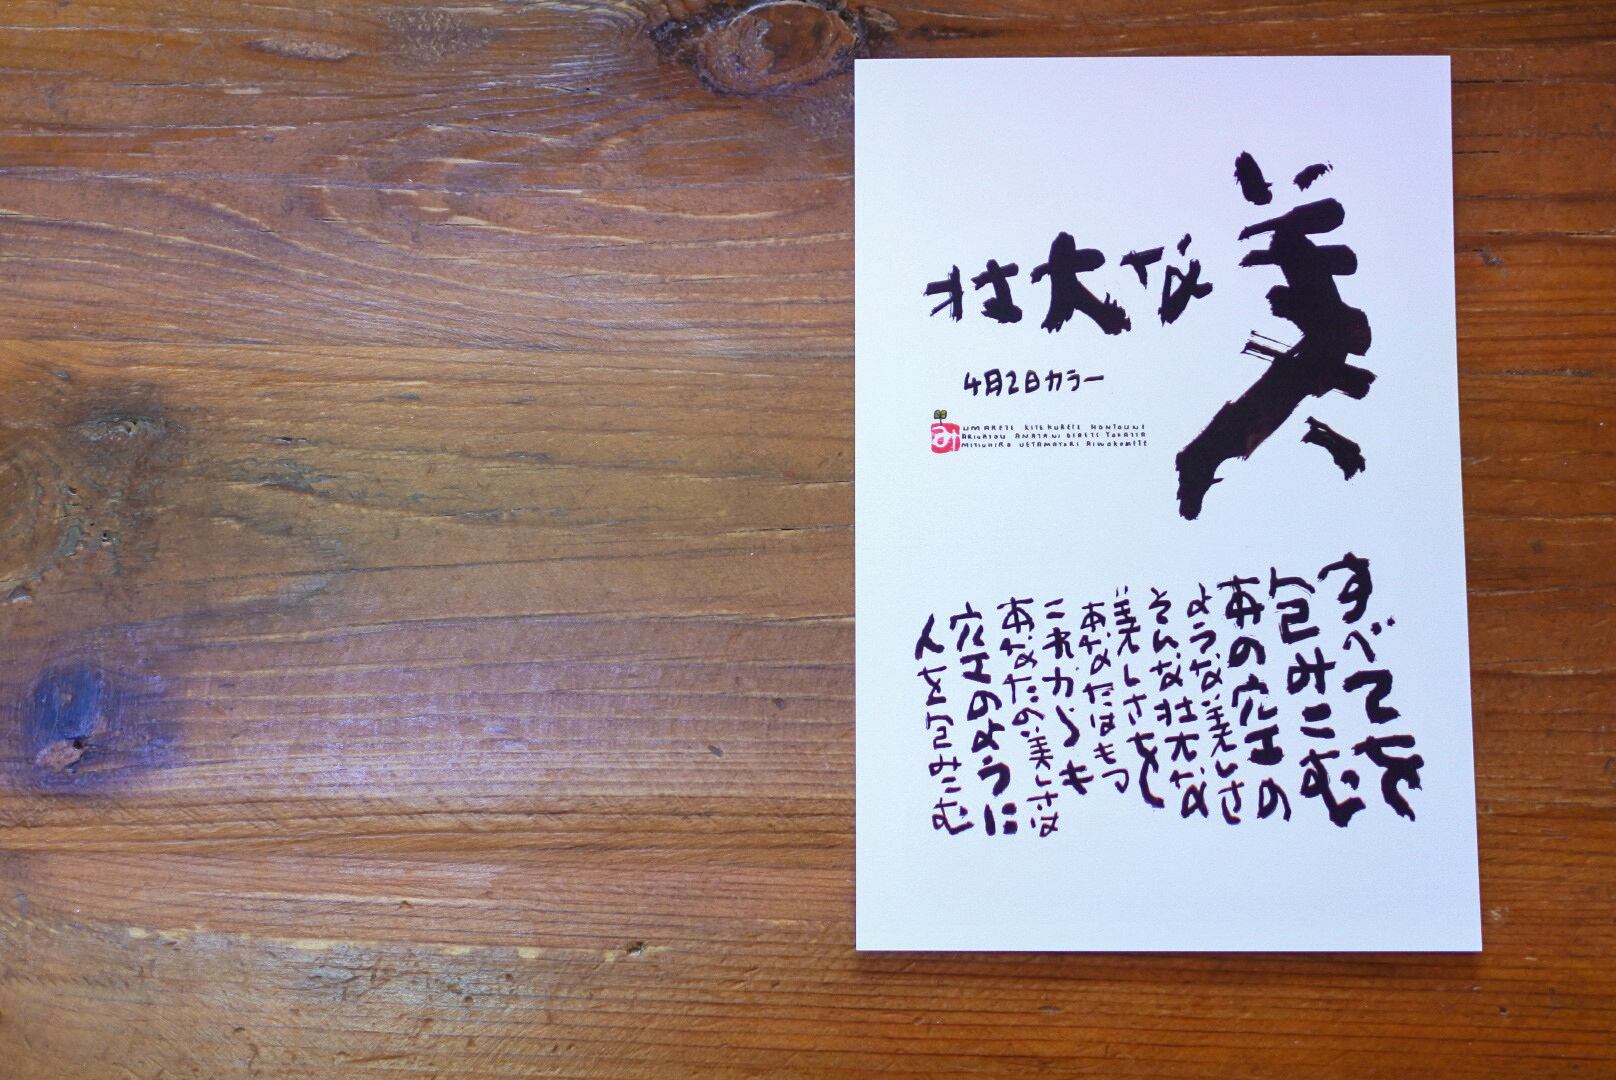 壮大な美
4月2日カラー
み
UMARETE KITEKURETE HONTOUNI
ARIGATOU ANATANI DEAETE YOKATTA
MITSUHIRO UETAMAYORI AIWOKOMETE
すべてを
包みこむ
あの空の
ような美しさ
そんな壮大な
美しさを
あなたはもつ
これからも
あなたの美しさは
空のように
人を包みこむ